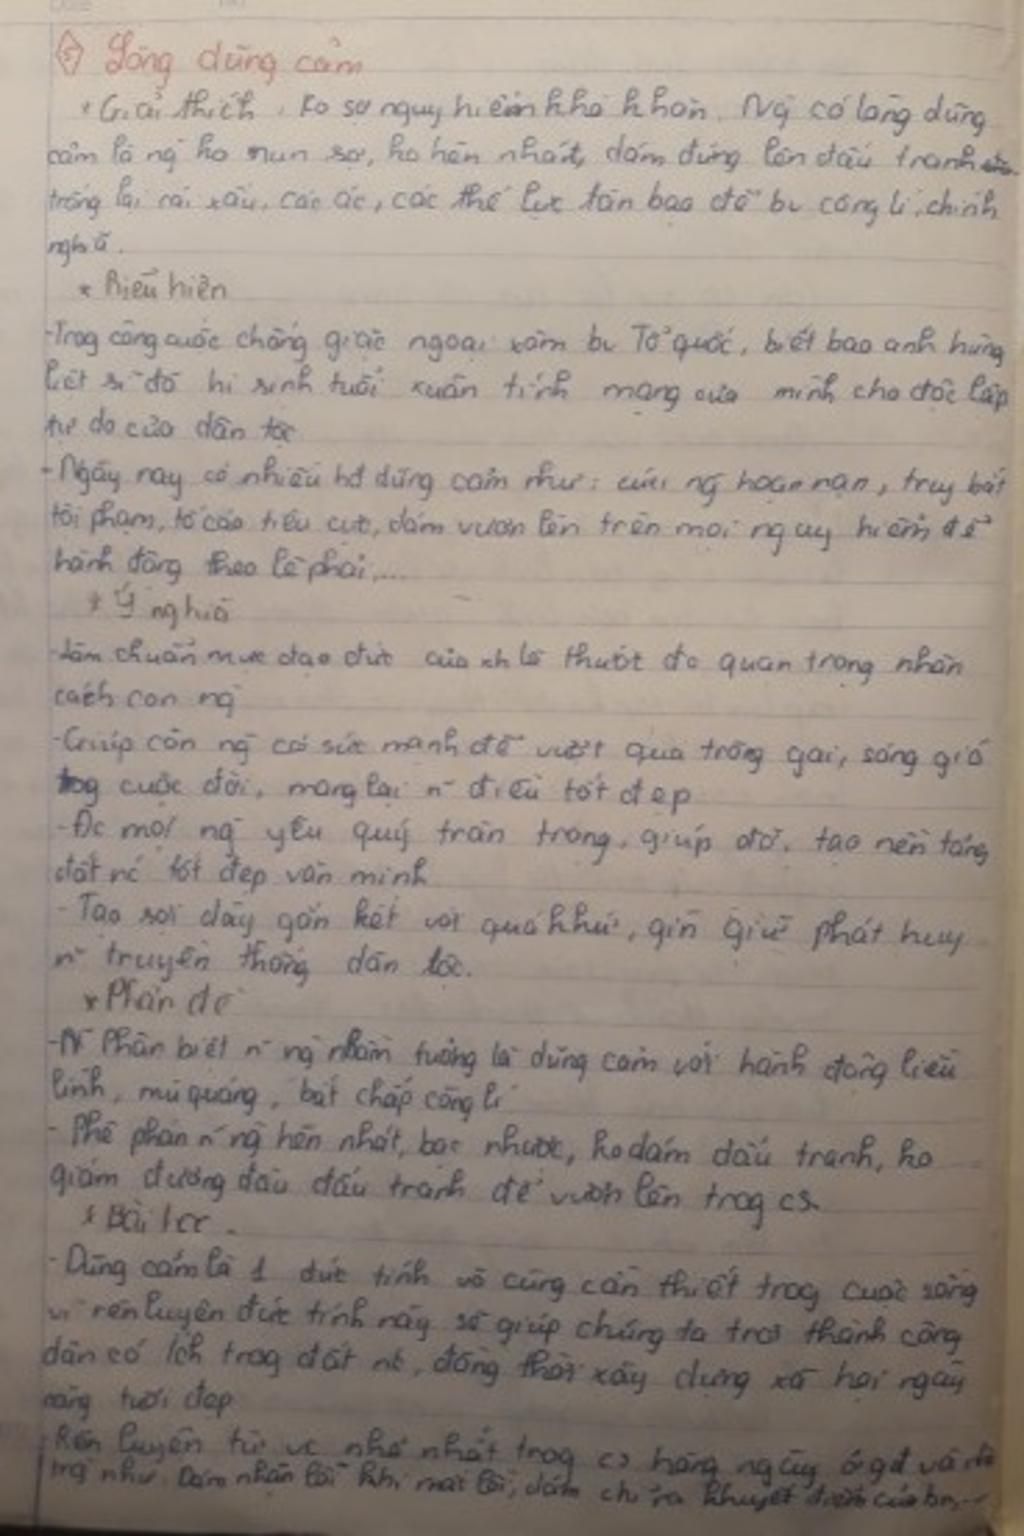 5 Lòng dũng cảm
* Giải thích: Ko sợ nguy hiểm khó khăn. Ng có lòng dũng
cảm là ng ko run sợ, ko hèn nhát, dám đứng lên đấu tranh
trống lại cái xấu, các ác, các thế lực tàn bạo để bv công lí, chính
nghĩa.
* Biểu hiện
- Trog công cuộc chống giặc ngoại xâm bv Tổ quốc, biết bao anh hùng
liệt sĩ đã hi sinh tuổi xuân tính mạng của mình cho độc lập
tự do của dân tộc
- Ngày nay có nhiều hđ dũng cảm như: cứu ng hoạn nạn, truy bắt
tội phạm, tố cáo tiêu cực, dám vươn lên trên mọi nguy hiểm để
hành động theo lẽ phải,...
* Ý nghĩa
- Làm chuẩn mực đạo đức của xh là thước đo quan trọng nhân
cách con ng
- Giúp con ng có sức mạnh để vượt qua trông gai, sóng gió
trog cuộc đời, mang lại n~ điều tốt đẹp
- Đc mọi ng yêu quý trân trọng, giúp đỡ, tạo nền tảng
đất nc tốt đẹp văn minh
- Tạo sợi dây gắn kết với quá khứ, gìn giữ phát huy
n~ truyền thống dân tộc.
* Phản đề
- Phân biệt n~ ng nhầm tưởng là dũng cảm với hành động liều
lĩnh, mù quáng, bất chấp công lí
- Phê phán n~ ng hèn nhát, bạc nhược, ko dám đấu tranh, ko
giám đương đầu đấu tranh để vươn lên trog cs.
* Bài
- Dũng cảm là 1 đức tính vô cùng cần thiết trog cuộc sống
vì rèn luyện đức tính này sẽ giúp chúng ta trở thành công
dân có ích trog đất nc, đồng thời xây dựng xã hội ngày
càng tươi đẹp
Rèn luyện từ vc nhỏ nhất trog cs hàng ngày ở gđ và
như: Dám nhận lỗi khi mắc lỗi, dám chỉ ra khuyết điểm của bn,...